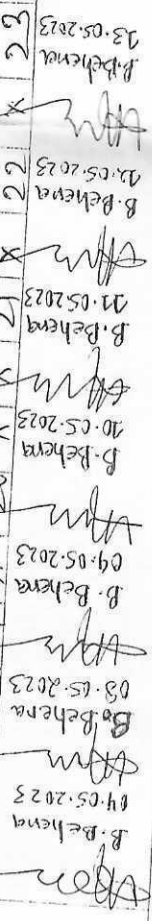 B. Behera
04.05.2023
B. Behera
08.05.2023
B. Behera
09.05.2023
B. Behera
10.05.2023
B. Behera
11.05.2023
B. Behera
12.05.2023
B. Behera
13.05.2023
21
22
23